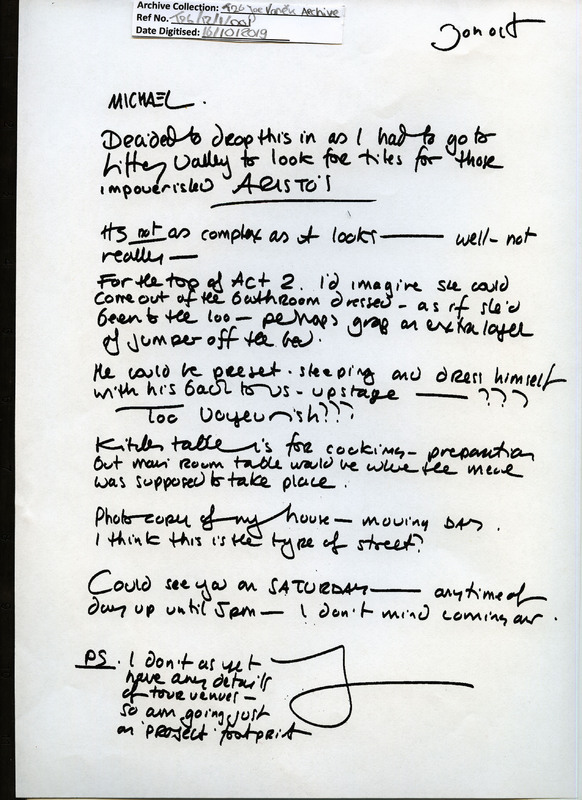 Archive Collection: T26 Joe Vaněk Archive
Ref No. T26/
Date Digitised: 16/10/2019
30 oct
MICHAEL.
Decided to drop this in as I had to go to
Liffey Valley to look for tiles for those
impoverished ARISTO'S
It's not as complex as it looks — well - not
really —
For the top of Act 2. I'd imagine she could
come out of the bathroom dressed - as if she'd
been to the loo — perhaps grab an extra layer
of jumper off the bed.
He could be preset - sleeping and dress himself
with his back to us - upstage — ???
Too Voyeurish???
Kitchen table is for cooking - preparation
but main room table would be where the meal
was supposed to take place.
Photocopy of my house — moving DAY.
I think this is the type of street?
Could see you on SATURDAY — anytime of
day up until 5pm — I don't mind coming over.
PS. I don't as yet
have any details
of tour venues —
so am going just
on 'PROJECT' footprint
J